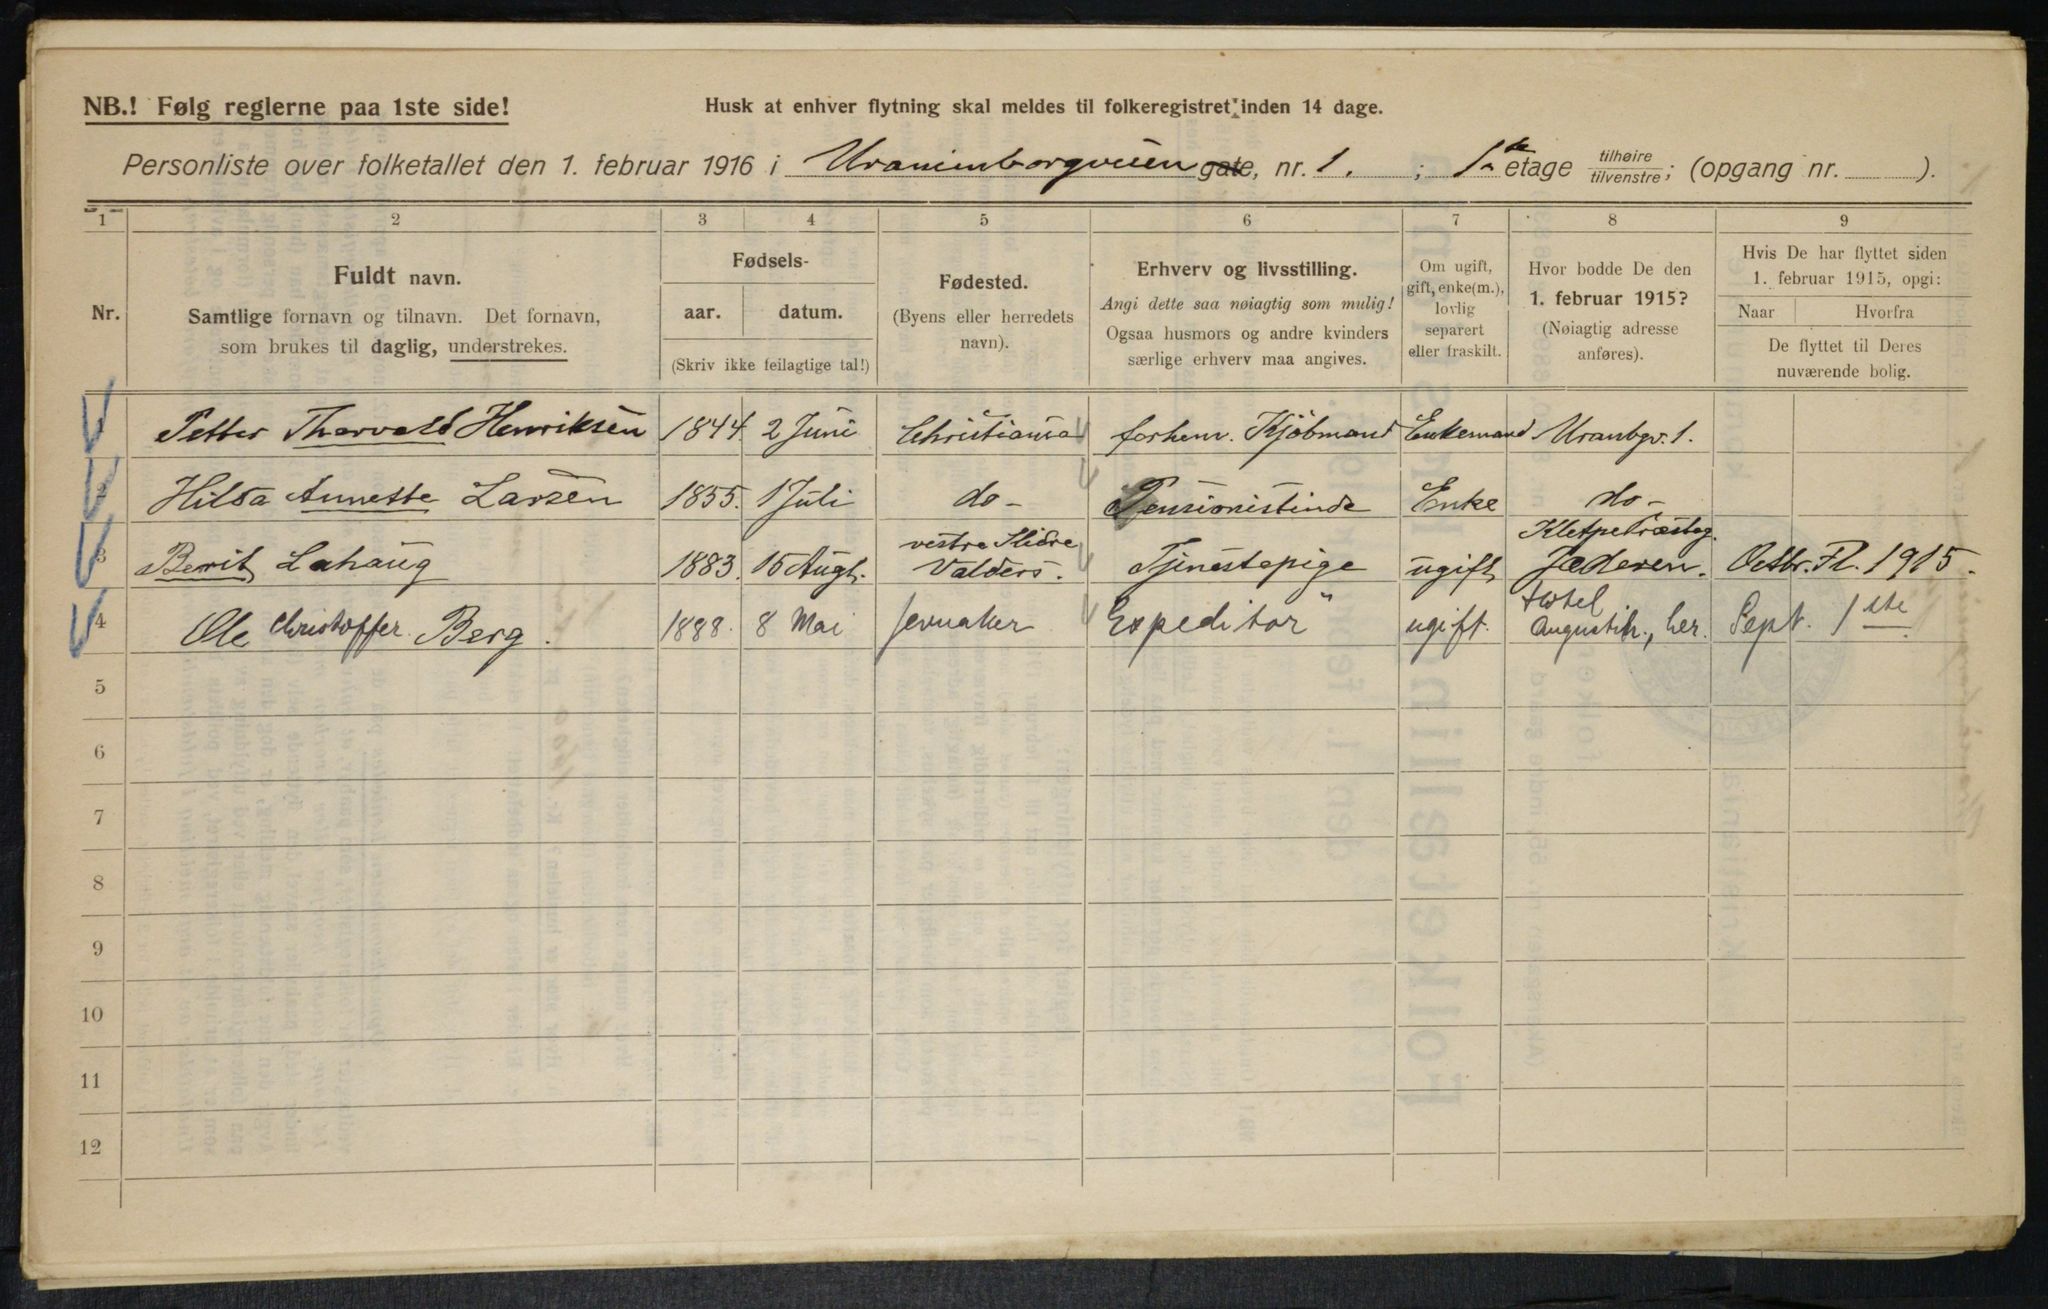 NB.! Følg reglerne paa 1ste side!
Husk at enhver flytning skal meldes til folkeregistret inden 14 dage.
Personliste over folketallet den 1. februar 1916 i Uranienborgveien gate, nr. 1. ; 1ste etage tilhøire tilvenstre; (opgang nr. ).
1 2 3 4 5 6 7 8 9
Nr.
Fuldt navn.
Samtlige fornavn og tilnavn. Det fornavn,
som brukes til daglig, understrekes.
Fødsels-
aar. datum.
(Skriv ikke feilagtige tal!)
Fødested.
(Byens eller herredets
navn).
Erhverv og livsstilling.
Angi dette saa nøiagtig som mulig!
Ogsaa husmors og andre kvinders
særlige erhverv maa angives.
Om ugift,
gift, enke(m.),
lovlig
separert
eller fraskilt.
Hvor bodde De den
1. februar 1915?
(Nøiagtig adresse
anføres).
Hvis De har flyttet siden
1. februar 1915, opgi:
Naar Hvorfra
De flyttet til Deres
nuværende bolig.
1 Petter Thorvald Henriksen 1844 2 Juni Christiania forhenv. Kjöbmand Enkemand Uranbgv. 1.
2 Hilda Annette Larsen 1855. 1 Juli do - Pensionistinde Enke do -
3 Berit Lahaug 1883. 15 Augt. vestre Slidre Valders. Tjenestepige ugift Jæderen. Octbr. Fl. 1915.
4 Ole Christoffer Berg. 1888. 8 Mai Jevnaker Expeditør ugift. Hotel Augustin, her. Sept. 1ste
5
6
7
8
9
10
11
12